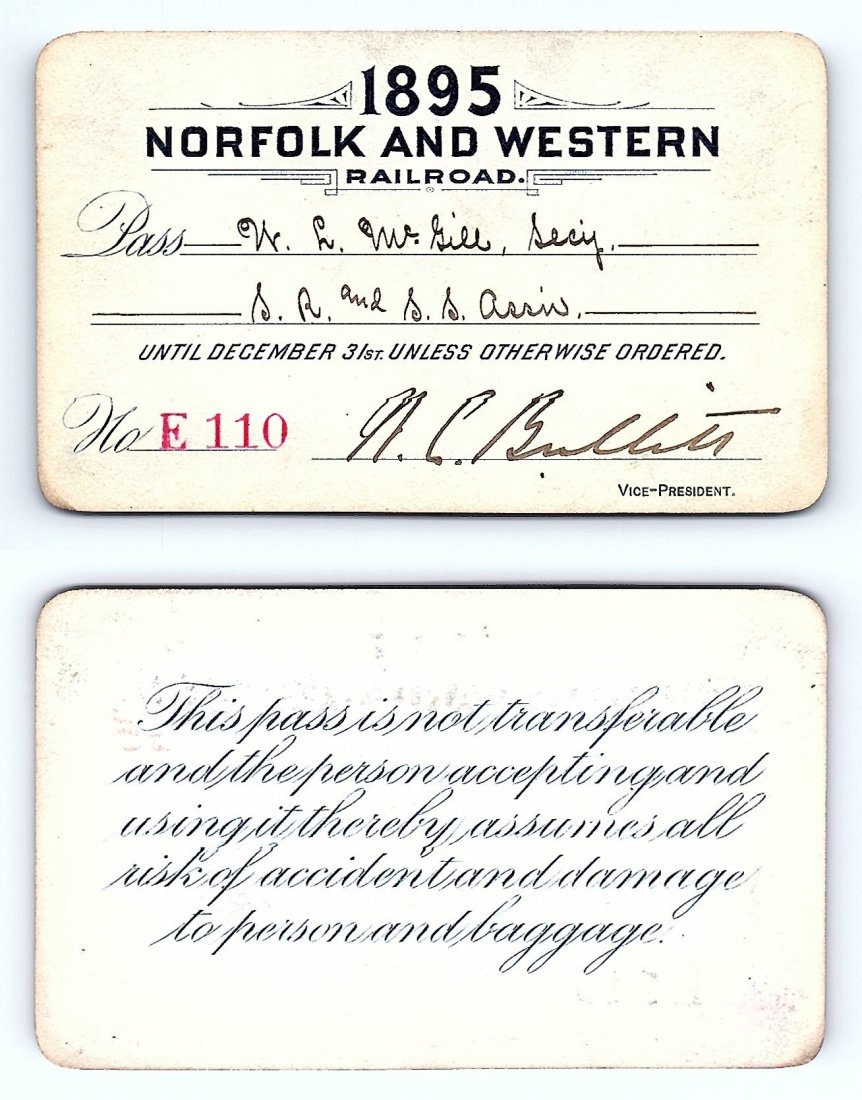 1895
NORFOLK AND WESTERN
RAILROAD.
Pass W. L. McGill, Secy,
S. R. and S. S. Assn.
UNTIL DECEMBER 31ST. UNLESS OTHERWISE ORDERED.
No E 110 W. C. Bullitt
VICE-PRESIDENT.
This pass is not transferable
and the person accepting and
using it, thereby, assumes all
risk of accident and damage
to person and baggage.